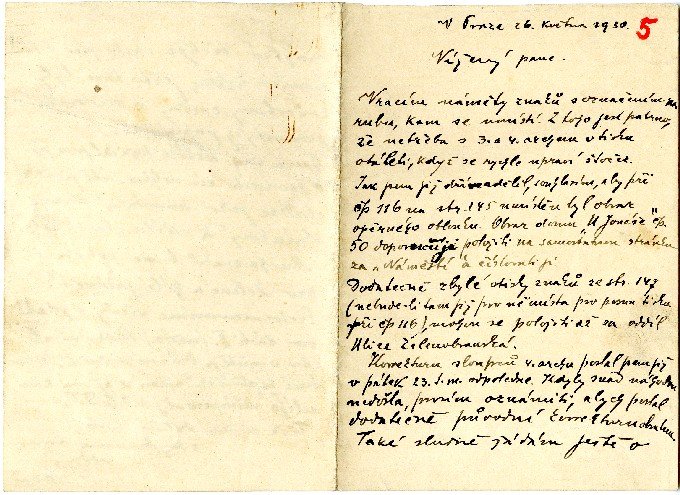 V Praze 26. května 1930.
5
Vážený pane.
Vracím náměty znaků s označením na
rubu, kam se umístí. Z toho jest patrno,
že netřeba s 3. a 4. archem v tisku
otáleti, když se rychle upraví štoček.
Jak jsem již sdělil, souhlasím, aby při
čp 116 na str. 145 umístěn byl obraz
opěrného oblouku. Obraz domu „U Jonáše" čp.
50 doporučuji položiti na samostatnou stránku
za „Náměstí" a číslovati ji
Dodatečně zbylé otisky znaků ze str. 147
(nebude-li tam již pro ně místa pro posun tisku
při čp 116), mohou se položiti až za oddíl
Ulice Zelenobranská.
Korrekturu sloupců 4. archu poslal jsem již
v pátek 23. t. m. odpoledne. Kdyby snad náhodou
nedošla, prosím oznámiti, abych poslal
dodatečně původní
Také slušně žádám ještě o